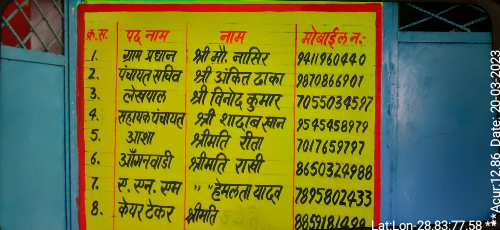 क्र.स. पद नाम नाम मोबाईल न.:
1. ग्राम प्रधान श्री मौ. नासिर 9411960440
2. पंचायत सचिव श्री अंकित ढाका 9870866901
3. लेखपाल श्री विनोद कुमार 7055034597
4. सहायक पंचायत श्री शादाब खान 9545458979
5. आशा श्रीमति रीता 7017659797
6. आँगनवाडी श्रीमति राखी 8650324988
7. ए. एन. एम " " हेमलता यादव 7895802433
8. केयर टेकर श्रीमति
Lat:Lon-28.83;77.58
**Acur12.86 Date: 20-03-2023